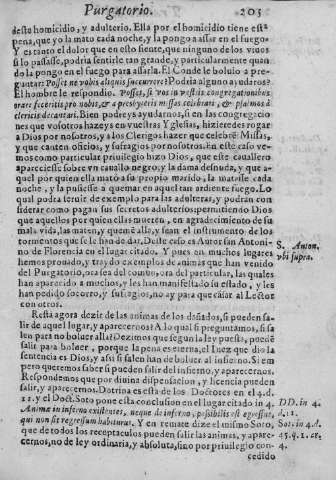 Purgatorio. 203
desto homicidio, y adulterio. Ella por el homicidio tiene esta
pena, que yo la mato cada noche, y la pongo a assar en el fuego.
Y es tanto el dolor que en esto siente, que ninguno de los viuos
si lo passasse, podria sentirle tan grande, y particularmente quan
do la pongo en el fuego para assarla. El Conde le boluio a pre-
guntar: Posset ne vobis aliquis succurrere? Podria alguno ayudaros?
El hombre le respondio. Posset, si vos in vestris congregationibus
orare feceritis pro nobis, & a presbyteris missas celebrari, & psalmos à
clericis decantari. Bien podreys ayudarnos, si en las congregacio
nes que vosotros hazeys en vuestras Yglesias, hizieredes rogar
à Dios por nosotros, y a los Clerigos hazer que celebrẽ Missas,
y que canten oficios, y sufragios por nosotros. En este caso ve-
mos como particular priuilegio hizo Dios, que este cauallero
apareciesse sobre vn cauallo negro, y la dama desnuda, y que a-
quel por quien ella mató a su propio marido, la matasse cada
noche, y la pusiesse a quemar en aquel tan ardiente fuego. Lo
qual podra seruir de exemplo para las adulteras, y podran con
siderar como pagan sus secretos adulterios: permitiendo Dios
que aquellos por quien ellas mueren, en agradecimiento de su
mala vida, las maten, y quemẽ alla, y sean el instrumento de los
tormentos que se les han de dar. Deste caso es Autor san Antoni-
no de Florencia en el lugar citado. Y pues en muchos lugares
hemos prouado, y traydo exemplos de animas que han venido
del Purgatorio, ora sea del comun, ora del particular, las quales
han aparecido a muchos, y les han manifestado su estado, y les
han pedido socorro, y sufragios, no ay para que cãsar al Lector
con otros.
S. Anton.
vbi supra.
Resta agora dezir de las animas de los dañados, si pueden sa-
lir de aquel lugar, y aparecernos? A lo qual si preguntamos, si sa
len para no boluer alla? Dezimos que segun la ley puesta, puedẽ
salir para boluer, porque la pena es eterna, el Iuez que dio la
sentencia es Dios, y assi si salen han de boluer al infierno. Si em
pero queremos saber si pueden salir del infierno, y aparecernos.
Respondemos que por diuina dispensacion, y licencia pueden
salir, y aparecernos. Dotrina es esta de los Doctores en el 4. d.
11. y el Doct. Soto pone esta conclusion en el lugar citado in 4.
Animæ in inferno existentes, neque de inferno, possibilis est egressus,
qui non sit regressum habiturus. Y en remate dize el mismo Soto,
que de todos los receptaculos pueden salir las animas, y apare-
cernos, no de ley ordinaria, y absoluta, sino por priuilegio con-
cedido
DD. in 4.
d. 11.
Sot. in 4. d.
45. q. 1. ar.
4.